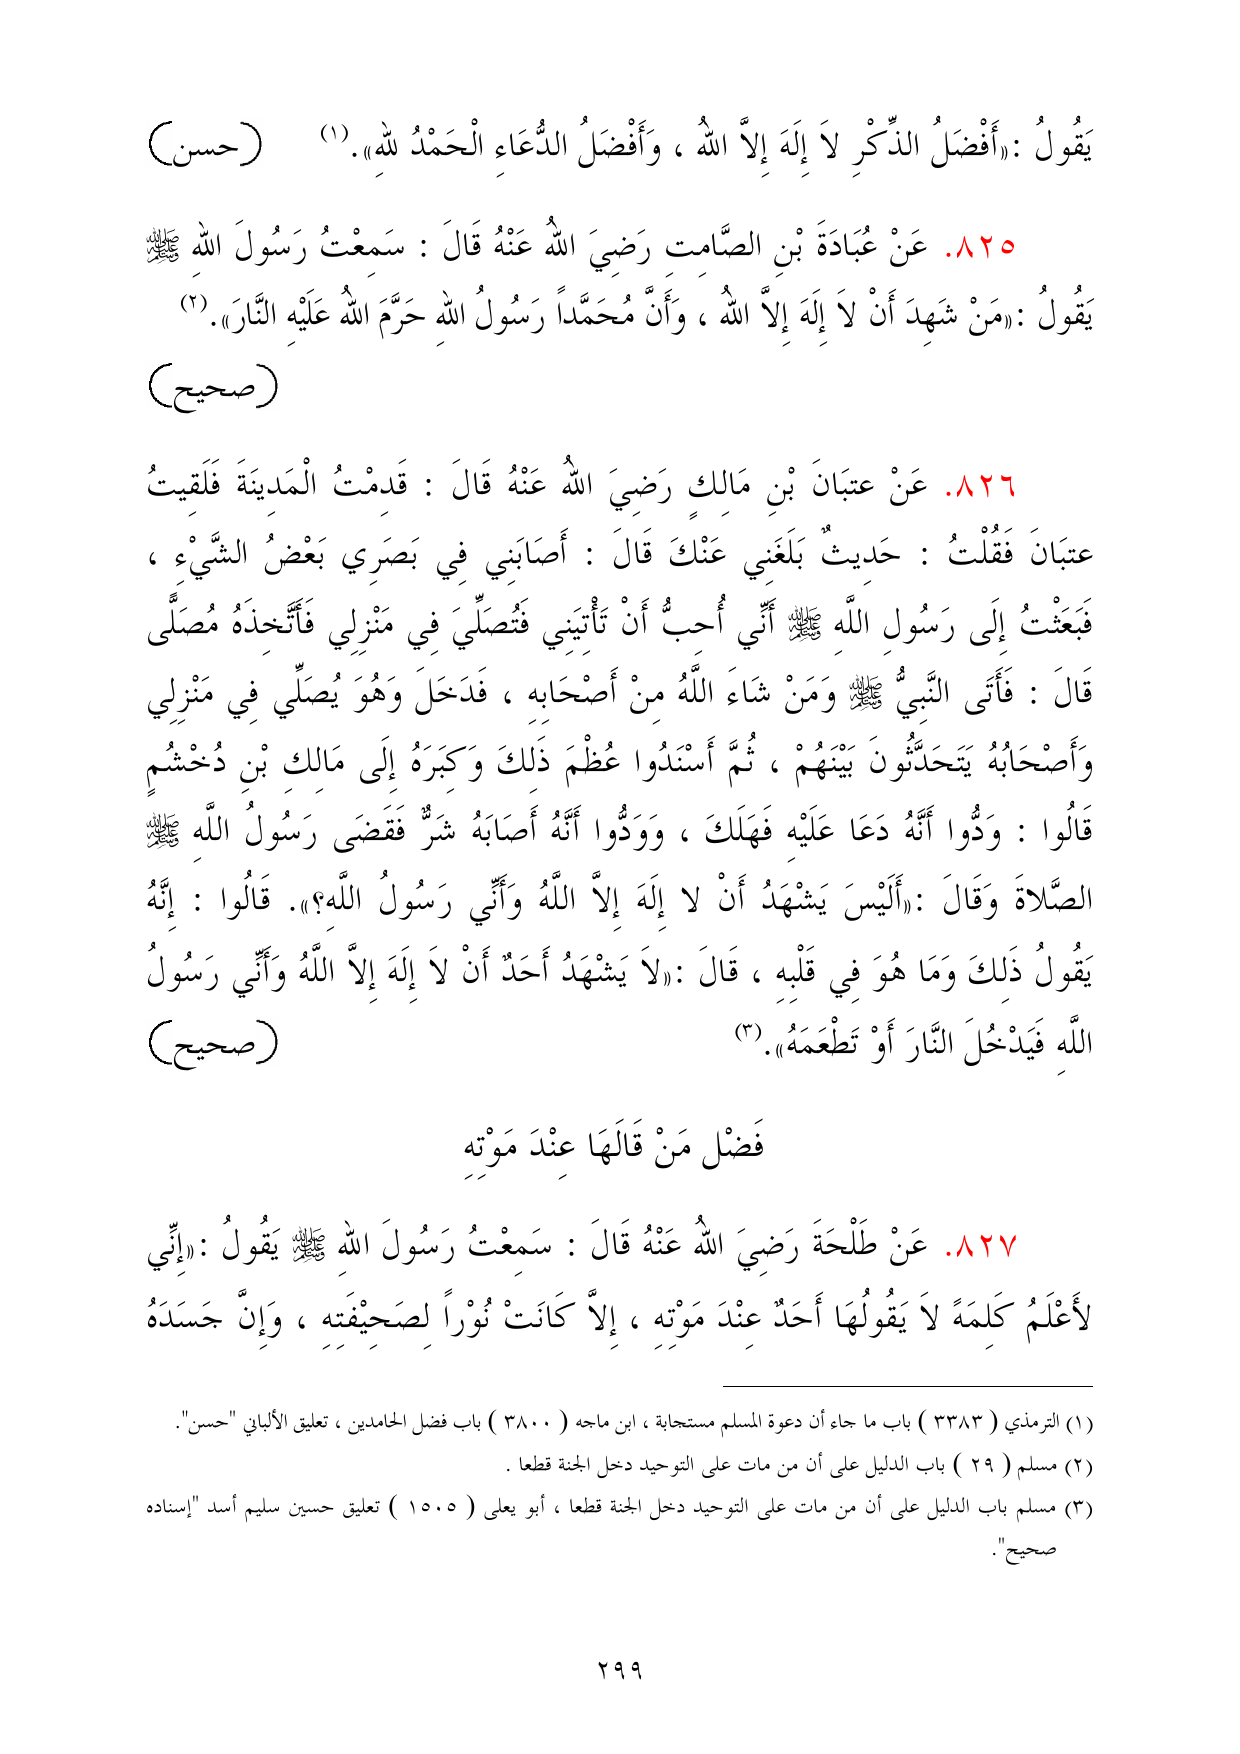 يَقُولُ :«أَفْضَلُ الذِّكْرِ لاَ إِلَهَ إِلاَّ اللهُ ، وَأَفْضَلُ الدُّعَاءِ الْحَمْدُ للهِ».(١) (حسن)
٨٢٥. عَنْ عُبَادَةَ بْنِ الصَّامِتِ رَضِيَ اللهُ عَنْهُ قَالَ : سَمِعْتُ رَسُولَ اللهِ ﷺ
يَقُولُ :«مَنْ شَهِدَ أَنْ لاَ إِلَهَ إِلاَّ اللهُ ، وَأَنَّ مُحَمَّداً رَسُولُ اللهِ حَرَّمَ اللهُ عَلَيْهِ النَّارَ».(٢)
(صحيح)
٨٢٦. عَنْ عتبَانَ بْنِ مَالِكٍ رَضِيَ اللهُ عَنْهُ قَالَ : قَدِمْتُ الْمَدِينَةَ فَلَقِيتُ
عتبَانَ فَقُلْتُ : حَدِيثٌ بَلَغَنِي عَنْكَ قَالَ : أَصَابَنِي فِي بَصَرِي بَعْضُ الشَّيْءِ ،
فَبَعَثْتُ إِلَى رَسُولِ اللَّهِ ﷺ أَنِّي أُحِبُّ أَنْ تَأْتِيَنِي فَتُصَلِّيَ فِي مَنْزِلِي فَأَتَّخِذَهُ مُصَلًّى
قَالَ : فَأَتَى النَّبِيُّ ﷺ وَمَنْ شَاءَ اللَّهُ مِنْ أَصْحَابِهِ ، فَدَخَلَ وَهُوَ يُصَلِّي فِي مَنْزِلِي
وَأَصْحَابُهُ يَتَحَدَّثُونَ بَيْنَهُمْ ، ثُمَّ أَسْنَدُوا عُظْمَ ذَلِكَ وَكِبَرَهُ إِلَى مَالِكِ بْنِ دُخْشُمٍ
قَالُوا : وَدُّوا أَنَّهُ دَعَا عَلَيْهِ فَهَلَكَ ، وَوَدُّوا أَنَّهُ أَصَابَهُ شَرٌّ فَقَضَى رَسُولُ اللَّهِ ﷺ
الصَّلاةَ وَقَالَ :«أَلَيْسَ يَشْهَدُ أَنْ لا إِلَهَ إِلاَّ اللَّهُ وَأَنِّي رَسُولُ اللَّهِ؟». قَالُوا : إِنَّهُ
يَقُولُ ذَلِكَ وَمَا هُوَ فِي قَلْبِهِ ، قَالَ :«لاَ يَشْهَدُ أَحَدٌ أَنْ لاَ إِلَهَ إِلاَّ اللَّهُ وَأَنِّي رَسُولُ
اللَّهِ فَيَدْخُلَ النَّارَ أَوْ تَطْعَمَهُ».(٣) (صحيح)
فَضْل مَنْ قَالَهَا عِنْدَ مَوْتِهِ
٨٢٧. عَنْ طَلْحَةَ رَضِيَ اللهُ عَنْهُ قَالَ : سَمِعْتُ رَسُولَ اللهِ ﷺ يَقُولُ :«إِنِّي
لأَعْلَمُ كَلِمَةً لاَ يَقُولُهَا أَحَدٌ عِنْدَ مَوْتِهِ ، إِلاَّ كَانَتْ نُوْراً لِصَحِيْفَتِهِ ، وَإِنَّ جَسَدَهُ
(١) الترمذي ( ٣٣٨٣ ) باب ما جاء أن دعوة المسلم مستجابة ، ابن ماجه ( ٣٨٠٠ ) باب فضل الحامدين ، تعليق الألباني "حسن".
(٢) مسلم ( ٢٩ ) باب الدليل على أن من مات على التوحيد دخل الجنة قطعا .
(٣) مسلم باب الدليل على أن من مات على التوحيد دخل الجنة قطعا ، أبو يعلى ( ١٥٠٥ ) تعليق حسين سليم أسد "إسناده
صحيح".
٢٩٩